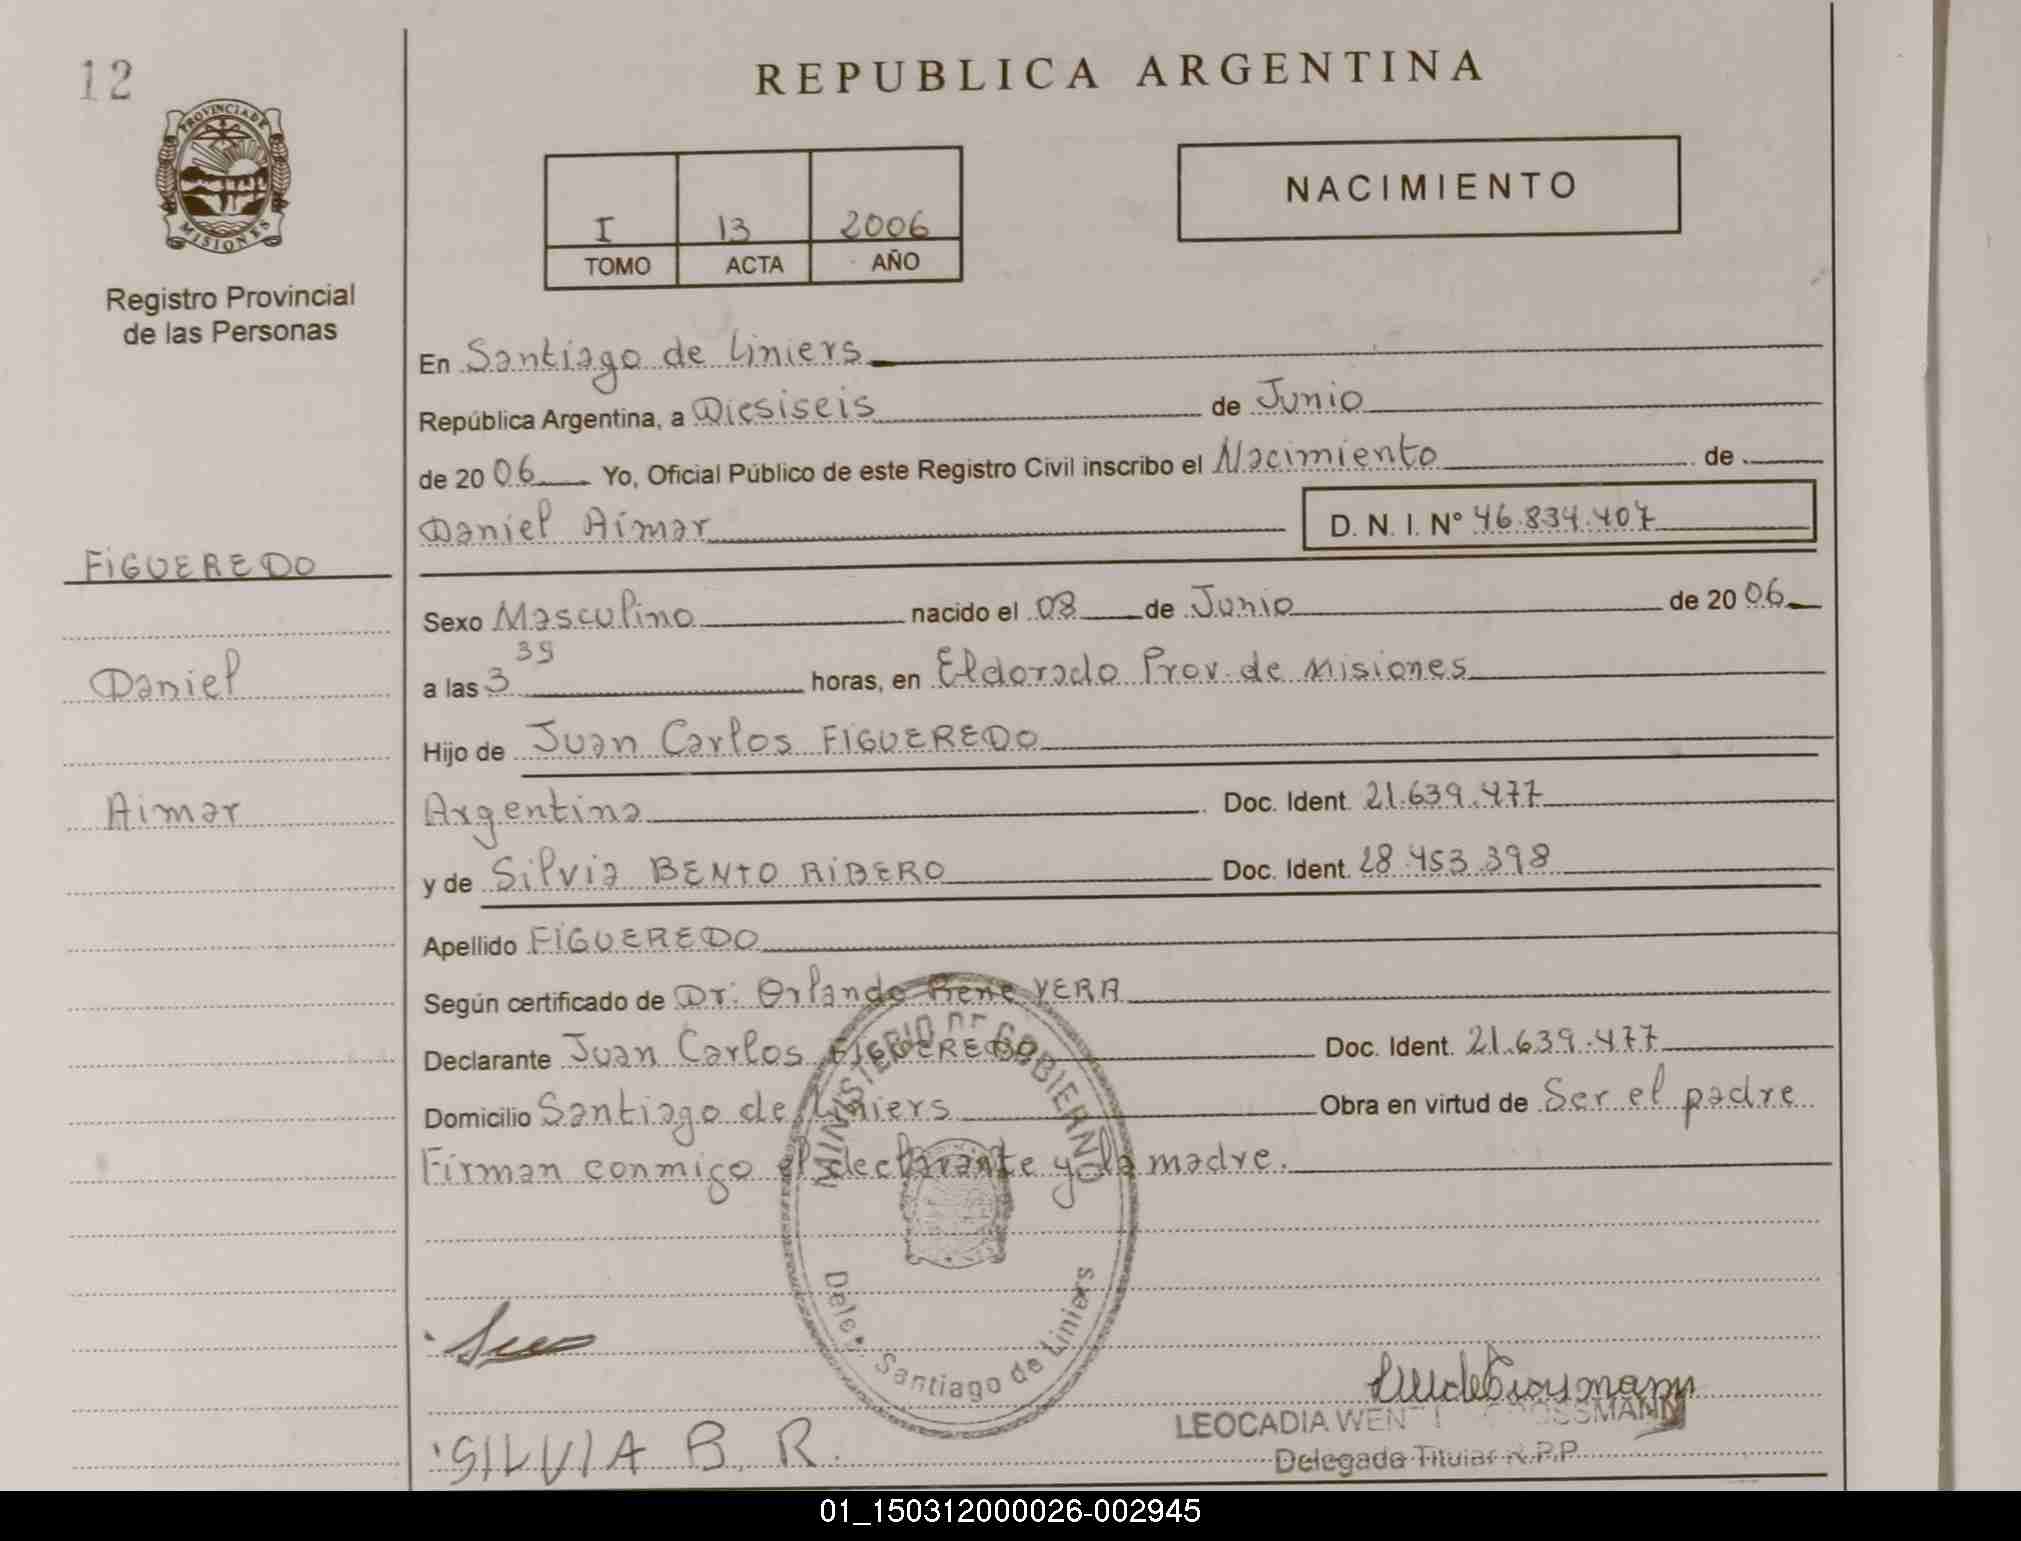 12
PROVINCIA DE
MISIONES
Registro Provincial
de las Personas
REPUBLICA ARGENTINA
I 13 2006
TOMO ACTA AÑO
NACIMIENTO
En Santiago de Liniers
República Argentina, a Diesiseis de Junio
de 2006 Yo, Oficial Público de este Registro Civil inscribo el Nacimiento de
Daniel Aimar D. N. I. N° 46.834.407
FIGUEREDO
Sexo Masculino nacido el 08 de Junio de 2006
Daniel
a las 3 39 horas, en Eldorado Prov. de Misiones
Hijo de Juan Carlos FIGUEREDO
Aimar
Argentina Doc. Ident. 21.639.477
y de Silvia BENTO RIBERO Doc. Ident. 28.453.398
Apellido FIGUEREDO
Según certificado de Dr. Orlando Rene VERA
Declarante Juan Carlos FIGUEREDO Doc. Ident. 21.639.477
Domicilio Santiago de Liniers Obra en virtud de Ser el padre
Firman conmigo el declarante y la madre.
MINISTERIO DE GOBIERNO
Deleg. Santiago de Liniers
SILVIA B. R.
LEOCADIA
Delegada Titular R.P.P.
01_150312000026-002945